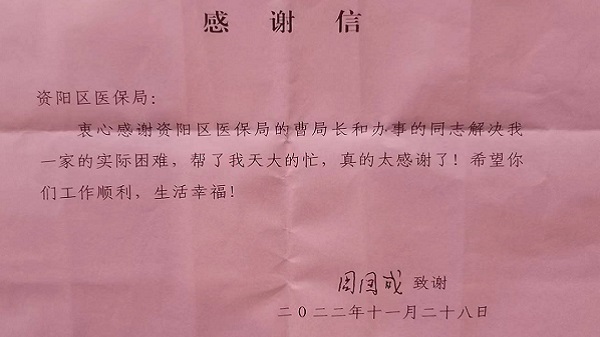 感谢信
资阳区医保局：
衷心感谢资阳区医保局的曹局长和办事的同志解决我
一家的实际困难，帮了我天大的忙，真的太感谢了！希望你
们工作顺利，生活幸福！
周国成 致谢
二０二二年十一月二十八日